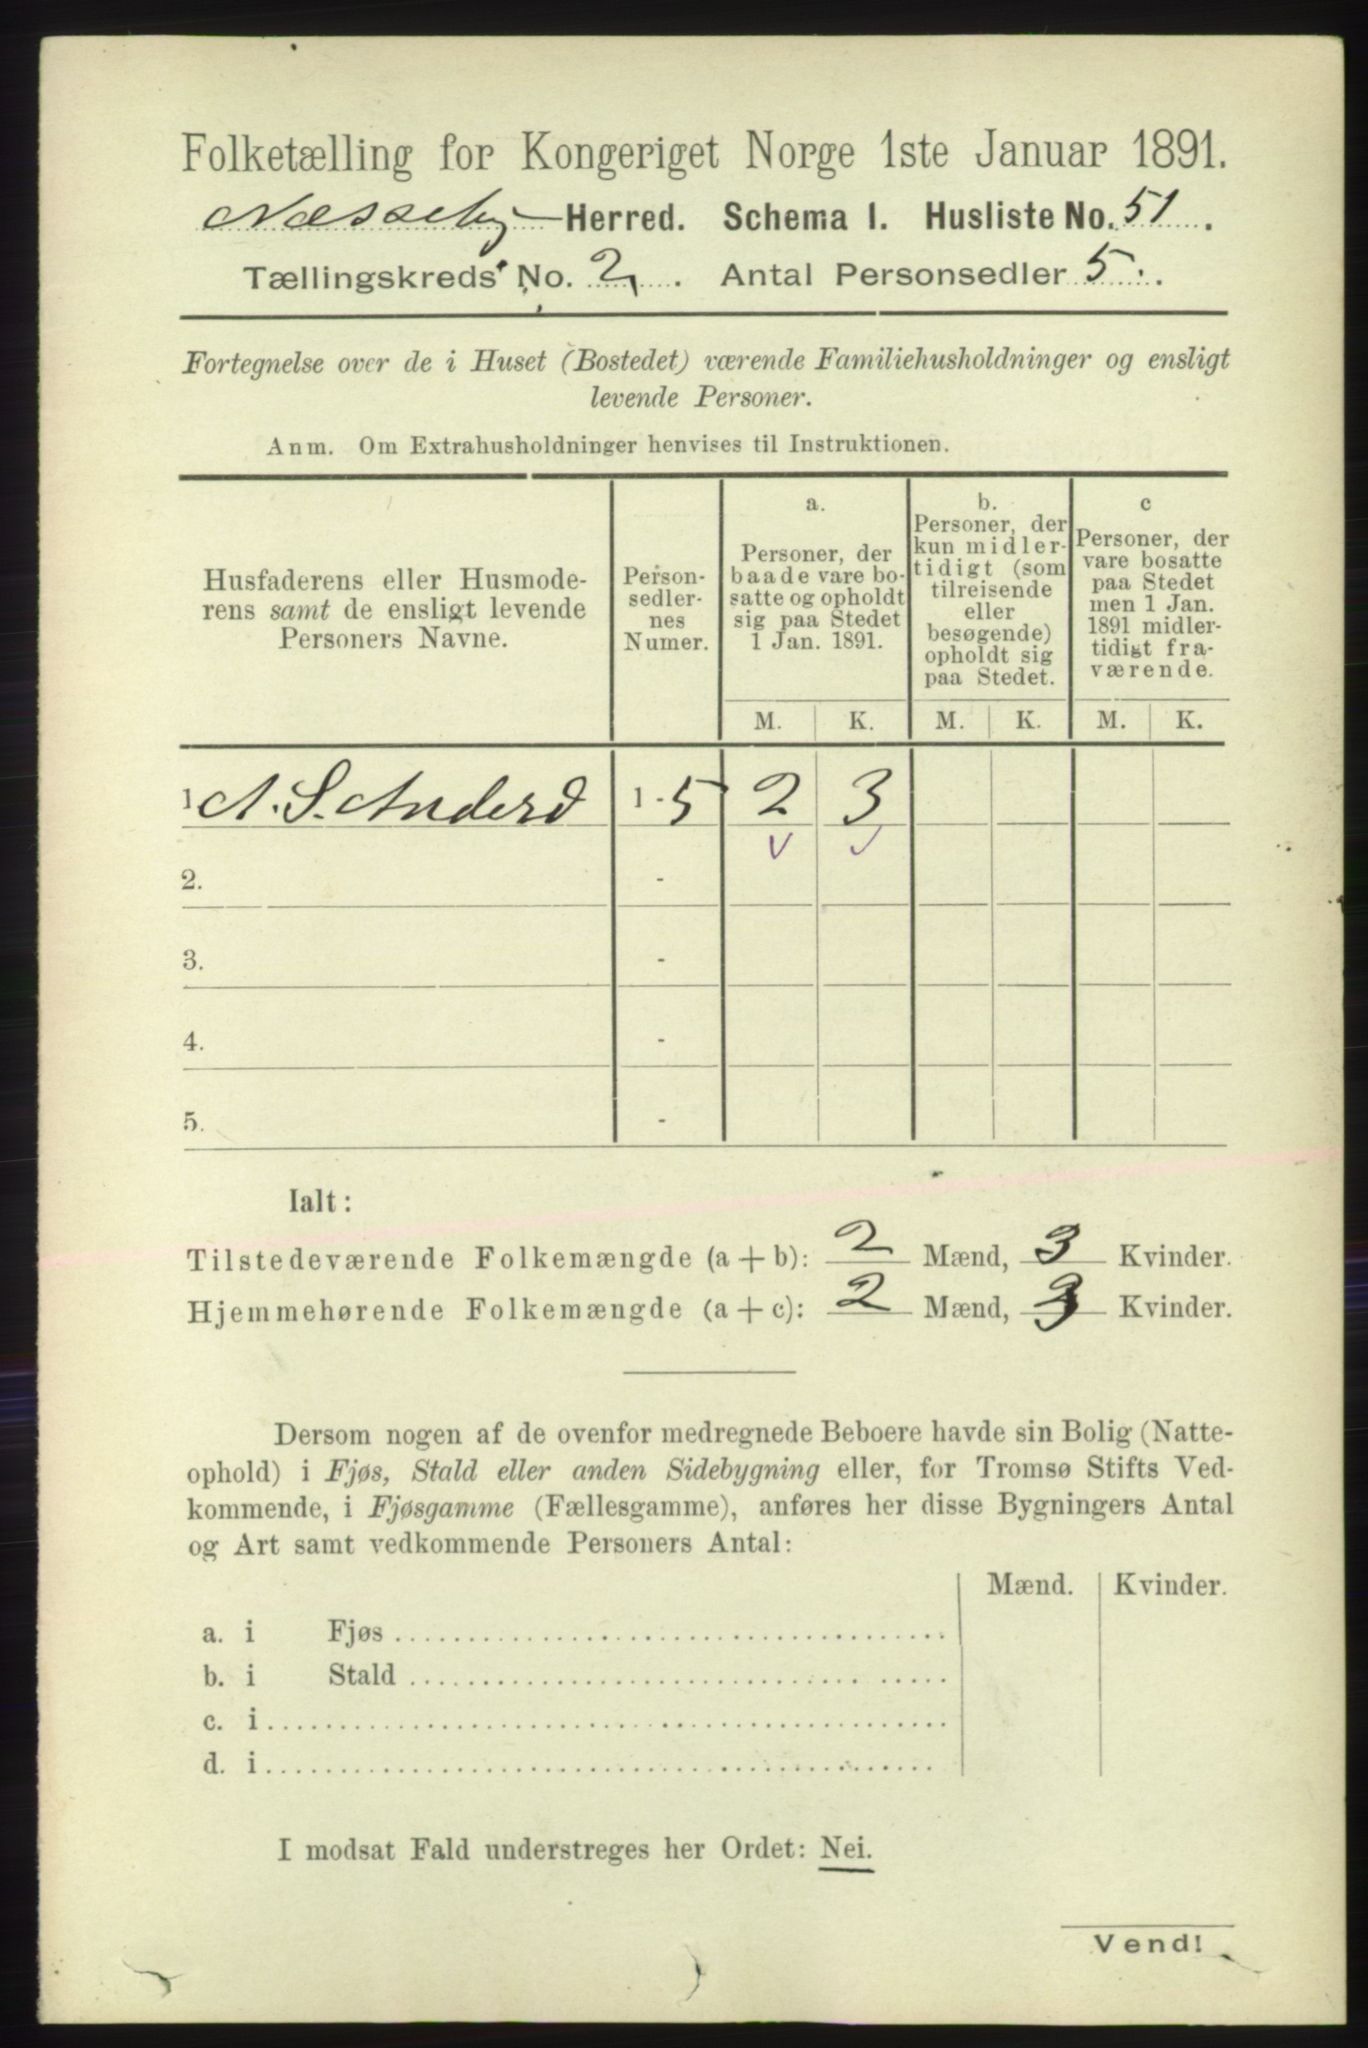 Folketælling for Kongeriget Norge 1ste Januar 1891.
Næsseby Herred. Schema I. Husliste No. 51.
Tællingskreds No. 2. Antal Personsedler 5.
Fortegnelse over de i Huset (Bostedet) værende Familiehusholdninger og ensligt
levende Personer.
Anm. Om Extrahusholdninger henvises til Instruktionen.
Husfaderens eller Husmode-
rens samt de ensligt levende
Personers Navne.
Person-
sedler-
nes
Numer.
a.
Personer, der
baade vare bo-
satte og opholdt
sig paa Stedet
1 Jan. 1891.
b.
Personer, der
kun midler-
tidigt (som
tilreisende
eller
besøgende)
opholdt sig
paa Stedet.
c
Personer, der
vare bosatte
paa Stedet
men 1 Jan.
1891 midler-
tidigt fra-
værende.
M. K. M. K. M. K.
1 A. S. Anders 1-5 2 3
2. -
3. -
4. -
5. -
Ialt:
Tilstedeværende Folkemængde (a + b): 2 Mænd, 3 Kvinder.
Hjemmehørende Folkemængde (a + c): 2 Mænd, 3 Kvinder.
Dersom nogen af de ovenfor medregnede Beboere havde sin Bolig (Natte-
ophold) i Fjøs, Stald eller anden Sidebygning eller, for Tromsø Stifts Ved-
kommende, i Fjøsgamme (Fællesgamme), anføres her disse Bygningers Antal
og Art samt vedkommende Personers Antal:
Mænd. Kvinder.
a. i Fjøs
b. i Stald
c. i
d. i
I modsat Fald understreges her Ordet: Nei.
Vend!